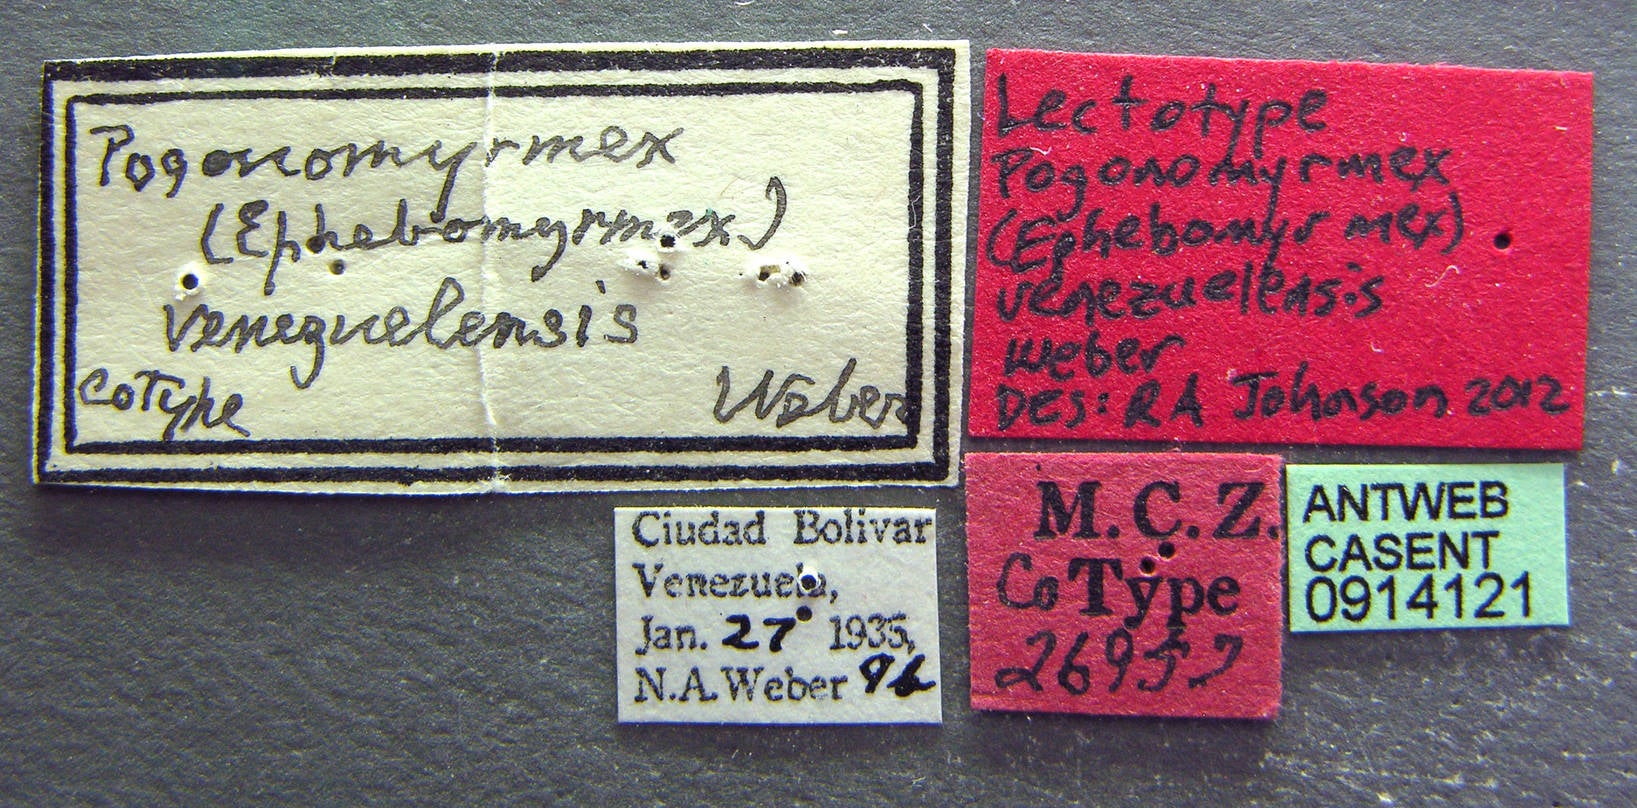 Pogonomyrmex
(Ephebomyrmex)
venezuelensis
coType Weber
Lectotype
Pogonomyrmex
(Ephebomyrmex)
venezuelensis
weber
DES: RA Johnson 2012
Ciudad Bolivar
Venezuela,
Jan. 27 1935,
N.A. Weber 96
M.C.Z.
CoType
26957
ANTWEB
CASENT
0914121